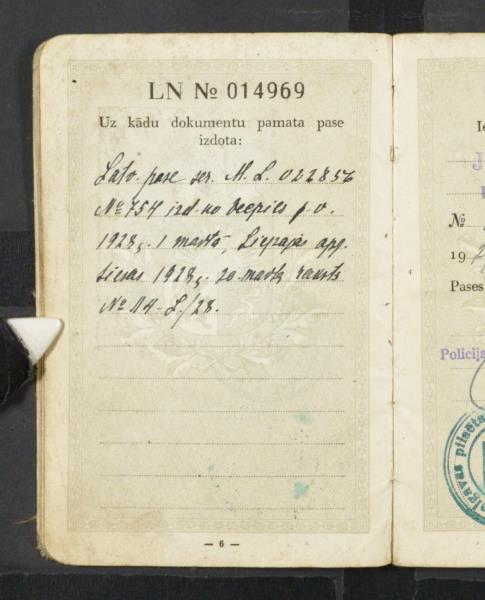 LN № 014969
Uz kādu dokumentu pamata pase
izdota:
Latv. pase ser. M. L. 022856
№ 754 izd. no Veepils p. v.
1928 g. 1 martā, Liepājas apg.
tiesas 1928 g. 20 marta raksts
№ 114-L/28.
— 6 —
J
№
19 2
Pases
Policija
elgavas pilsēta